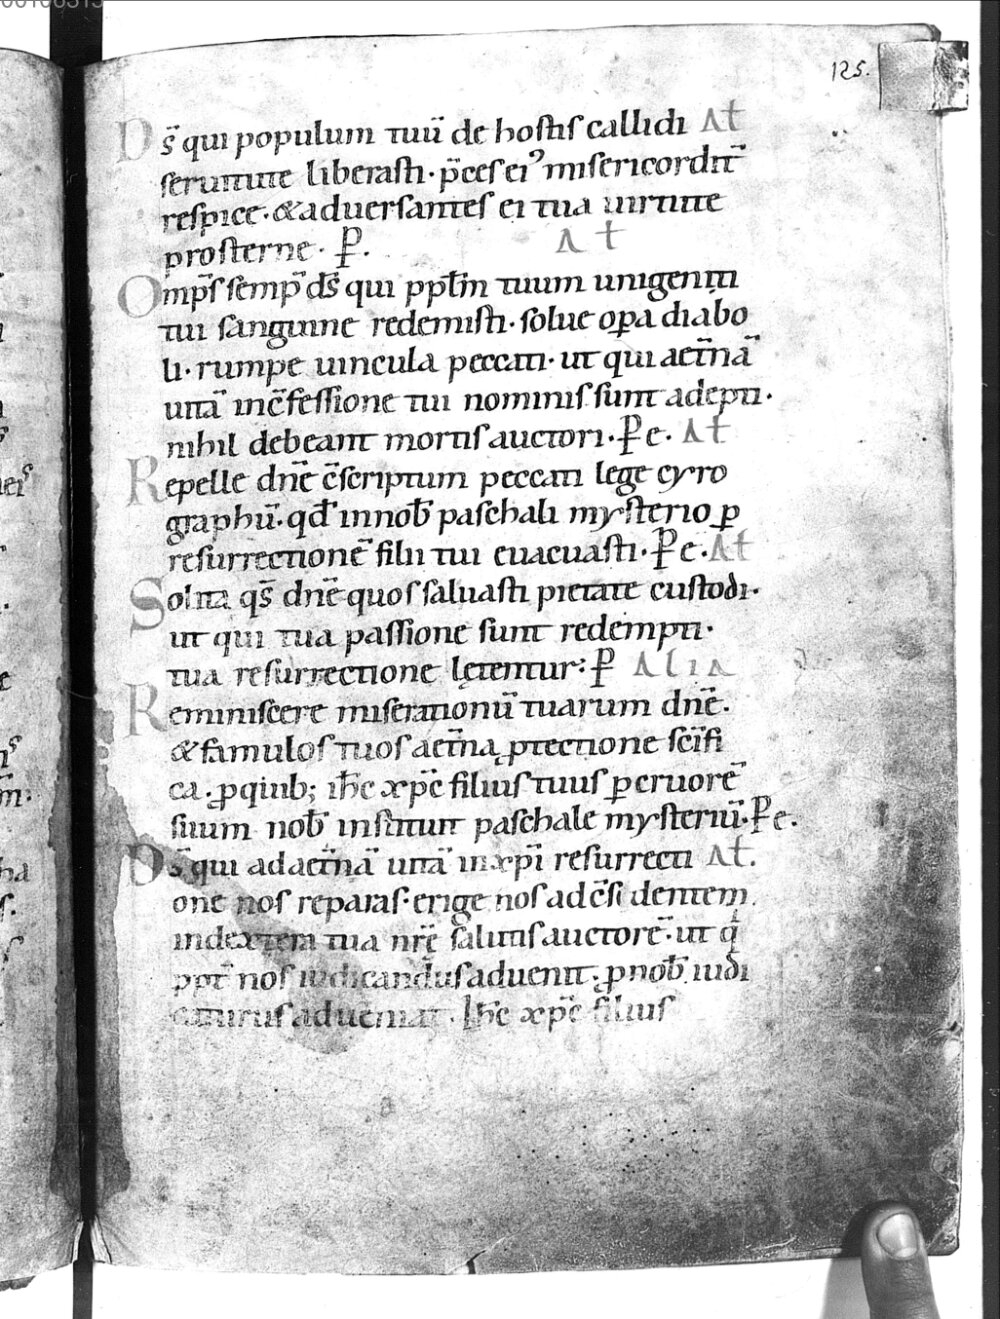 125.
D s̄ qui populum tuū de hostis callidi At
seruitute liberasti· p̄ces ei᾽ misericordit̄
respice· & aduersantes ei tua uirtute
prosterne· P̄.
At
Omp̄s semp̄ d̄s qui pptīm tuum unigeniti
tui sanguine redemisti· solue opa diabo
li· rumpe uincula peccati· ut qui aet̄nā
uitā inc̄fessione tui nominis sunt adepti·
nihil debeant mortis auctori· P̄ e· At
Repelle dn̄e c̄scriptum peccati lege cyro
graphū· qđ innob̄ paschali mysterio p
resurrectionē filii tui euacuasti· P̄ e· At
Solita qs̄ dn̄e quos saluasti pietate custodi·
ut qui tua passione sunt redempti·
tua resurrectione lętentur: P̄ Alia
Reminiscere miserationū tuarum dn̄e·
& famulos tuos aet̄na ptectione sc̄ifi
ca· pquib; ih̄c xp̄c filius tuus p cruorē
suum nob̄ instituit paschale mysteriū· P̄ e·
D s̄ qui ad aet̄nā uitā in xp̄i resurrecti At.
one nos reparas· erige nos ad c̄si dentem
indextera tua nr̄ę salutis auctorē· ut q
ppt̄ nos iudicandus aduenit· pnob̄ iudi
caturus adueniat. Ih̄c xp̄c filius